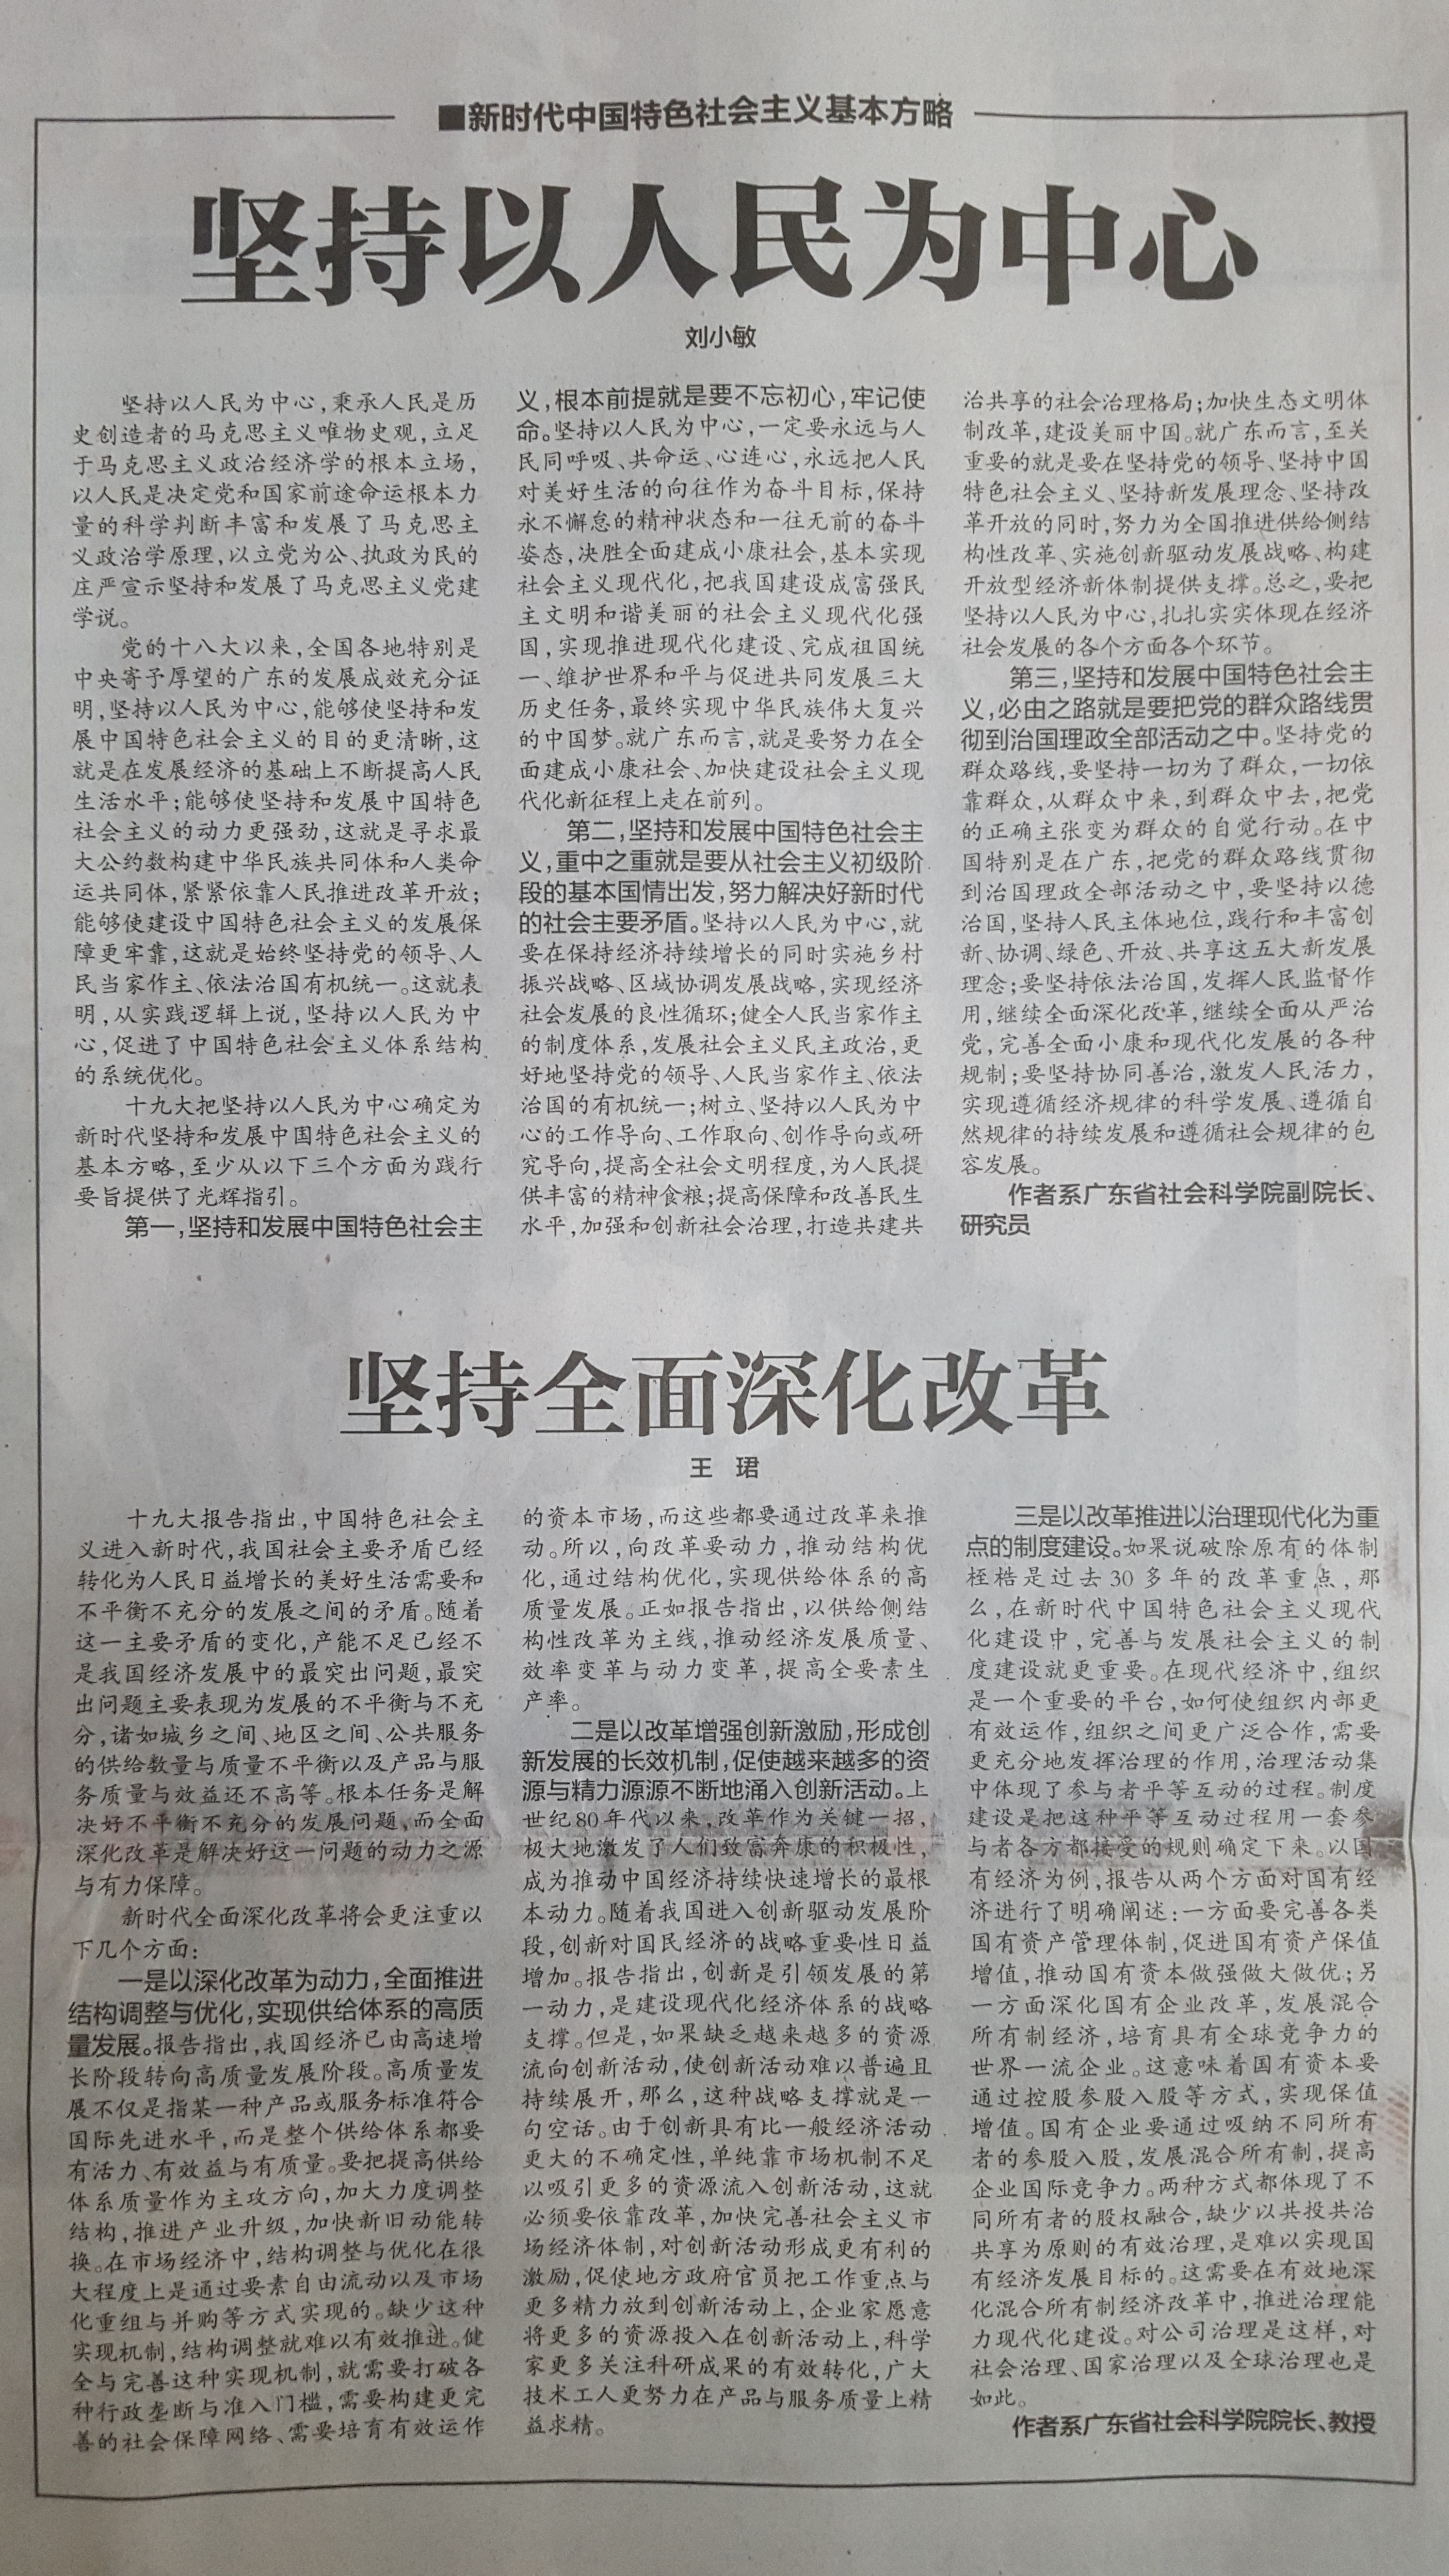 ■新时代中国特色社会主义基本方略
坚持以人民为中心
刘小敏
坚持以人民为中心,秉承人民是历
史创造者的马克思主义唯物史观,立足
于马克思主义政治经济学的根本立场,
以人民是决定党和国家前途命运根本力
量的科学判断丰富和发展了马克思主
义政治学原理,以立党为公、执政为民的
庄严宣示坚持和发展了马克思主义党建
学说。
党的十八大以来,全国各地特别是
中央寄予厚望的广东的发展成效充分证
明,坚持以人民为中心,能够使坚持和发
展中国特色社会主义的目的更清晰,这
就是在发展经济的基础上不断提高人民
生活水平;能够使坚持和发展中国特色
社会主义的动力更强劲,这就是寻求最
大公约数构建中华民族共同体和人类命
运共同体,紧紧依靠人民推进改革开放;
能够使建设中国特色社会主义的发展保
障更牢靠,这就是始终坚持党的领导、人
民当家作主、依法治国有机统一。这就表
明,从实践逻辑上说,坚持以人民为中
心,促进了中国特色社会主义体系结构
的系统优化。
十九大把坚持以人民为中心确定为
新时代坚持和发展中国特色社会主义的
基本方略,至少从以下三个方面为践行
要旨提供了光辉指引。
第一,坚持和发展中国特色社会主
义,根本前提就是要不忘初心,牢记使
命。坚持以人民为中心,一定要永远与人
民同呼吸、共命运、心连心,永远把人民
对美好生活的向往作为奋斗目标,保持
永不懈怠的精神状态和一往无前的奋斗
姿态,决胜全面建成小康社会,基本实现
社会主义现代化,把我国建设成富强民
主文明和谐美丽的社会主义现代化强
国,实现推进现代化建设、完成祖国统
一、维护世界和平与促进共同发展三大
历史任务,最终实现中华民族伟大复兴
的中国梦。就广东而言,就是要努力在全
面建成小康社会、加快建设社会主义现
代化新征程上走在前列。
第二,坚持和发展中国特色社会主
义,重中之重就是要从社会主义初级阶
段的基本国情出发,努力解决好新时代
的社会主要矛盾。坚持以人民为中心,就
要在保持经济持续增长的同时实施乡村
振兴战略、区域协调发展战略,实现经济
社会发展的良性循环;健全人民当家作主
的制度体系,发展社会主义民主政治,更
好地坚持党的领导、人民当家作主、依法
治国的有机统一;树立、坚持以人民为中
心的工作导向、工作取向、创作导向或研
究导向,提高全社会文明程度,为人民提
供丰富的精神食粮;提高保障和改善民生
水平,加强和创新社会治理,打造共建共
治共享的社会治理格局;加快生态文明体
制改革,建设美丽中国。就广东而言,至关
重要的就是要在坚持党的领导、坚持中国
特色社会主义、坚持新发展理念、坚持改
革开放的同时,努力为全国推进供给侧结
构性改革、实施创新驱动发展战略、构建
开放型经济新体制提供支撑。总之,要把
坚持以人民为中心,扎扎实实体现在经济
社会发展的各个方面各个环节。
第三,坚持和发展中国特色社会主
义,必由之路就是要把党的群众路线贯
彻到治国理政全部活动之中。坚持党的
群众路线,要坚持一切为了群众,一切依
靠群众,从群众中来,到群众中去,把党
的正确主张变为群众的自觉行动。在中
国特别是在广东,把党的群众路线贯彻
到治国理政全部活动之中,要坚持以德
治国,坚持人民主体地位,践行和丰富创
新、协调、绿色、开放、共享这五大新发展
理念;要坚持依法治国,发挥人民监督作
用,继续全面深化改革,继续全面从严治
党,完善全面小康和现代化发展的各种
规制;要坚持协同善治,激发人民活力,
实现遵循经济规律的科学发展、遵循自
然规律的持续发展和遵循社会规律的包
容发展。
作者系广东省社会科学院副院长、
研究员
坚持全面深化改革
王 珺
十九大报告指出,中国特色社会主
义进入新时代,我国社会主要矛盾已经
转化为人民日益增长的美好生活需要和
不平衡不充分的发展之间的矛盾。随着
这一主要矛盾的变化,产能不足已经不
是我国经济发展中的最突出问题,最突
出问题主要表现为发展的不平衡与不充
分,诸如城乡之间、地区之间、公共服务
的供给数量与质量不平衡以及产品与服
务质量与效益还不高等。根本任务是解
决好不平衡不充分的发展问题,而全面
深化改革是解决好这一问题的动力之源
与有力保障。
新时代全面深化改革将会更注重以
下几个方面:
一是以深化改革为动力,全面推进
结构调整与优化,实现供给体系的高质
量发展。报告指出,我国经济已由高速增
长阶段转向高质量发展阶段。高质量发
展不仅是指某一种产品或服务标准符合
国际先进水平,而是整个供给体系都要
有活力、有效益与有质量。要把提高供给
体系质量作为主攻方向,加大力度调整
结构,推进产业升级,加快新旧动能转
换。在市场经济中,结构调整与优化在很
大程度上是通过要素自由流动以及市场
化重组与并购等方式实现的。缺少这种
实现机制,结构调整就难以有效推进。健
全与完善这种实现机制,就需要打破各
种行政垄断与准入门槛,需要构建更完
善的社会保障网络、需要培育有效运作
的资本市场,而这些都要通过改革来推
动。所以,向改革要动力,推动结构优
化,通过结构优化,实现供给体系的高
质量发展。正如报告指出,以供给侧结
构性改革为主线,推动经济发展质量、
效率变革与动力变革,提高全要素生
产率。
二是以改革增强创新激励,形成创
新发展的长效机制,促使越来越多的资
源与精力源源不断地涌入创新活动。上
世纪80年代以来,改革作为关键一招,
极大地激发了人们致富奔康的积极性,
成为推动中国经济持续快速增长的最根
本动力。随着我国进入创新驱动发展阶
段,创新对国民经济的战略重要性日益
增加。报告指出,创新是引领发展的第
一动力,是建设现代化经济体系的战略
支撑。但是,如果缺乏越来越多的资源
流向创新活动,使创新活动难以普遍且
持续展开,那么,这种战略支撑就是一
句空话。由于创新具有比一般经济活动
更大的不确定性,单纯靠市场机制不足
以吸引更多的资源流入创新活动,这就
必须要依靠改革,加快完善社会主义市
场经济体制,对创新活动形成更有利的
激励,促使地方政府官员把工作重点与
更多精力放到创新活动上,企业家愿意
将更多的资源投入在创新活动上,科学
家更多关注科研成果的有效转化,广大
技术工人更努力在产品与服务质量上精
益求精。
三是以改革推进以治理现代化为重
点的制度建设。如果说破除原有的体制
桎梏是过去30多年的改革重点,那
么,在新时代中国特色社会主义现代
化建设中,完善与发展社会主义的制
度建设就更重要。在现代经济中,组织
是一个重要的平台,如何使组织内部更
有效运作,组织之间更广泛合作,需要
更充分地发挥治理的作用,治理活动集
中体现了参与者平等互动的过程。制度
建设是把这种平等互动过程用一套参
与者各方都接受的规则确定下来。以国
有经济为例,报告从两个方面对国有经
济进行了明确阐述:一方面要完善各类
国有资产管理体制,促进国有资产保值
增值,推动国有资本做强做大做优;另
一方面深化国有企业改革,发展混合
所有制经济,培育具有全球竞争力的
世界一流企业。这意味着国有资本要
通过控股参股入股等方式,实现保值
增值。国有企业要通过吸纳不同所有
者的参股入股,发展混合所有制,提高
企业国际竞争力。两种方式都体现了不
同所有者的股权融合,缺少以共投共治
共享为原则的有效治理,是难以实现国
有经济发展目标的。这需要在有效地深
化混合所有制经济改革中,推进治理能
力现代化建设。对公司治理是这样,对
社会治理、国家治理以及全球治理也是
如此。
作者系广东省社会科学院院长、教授